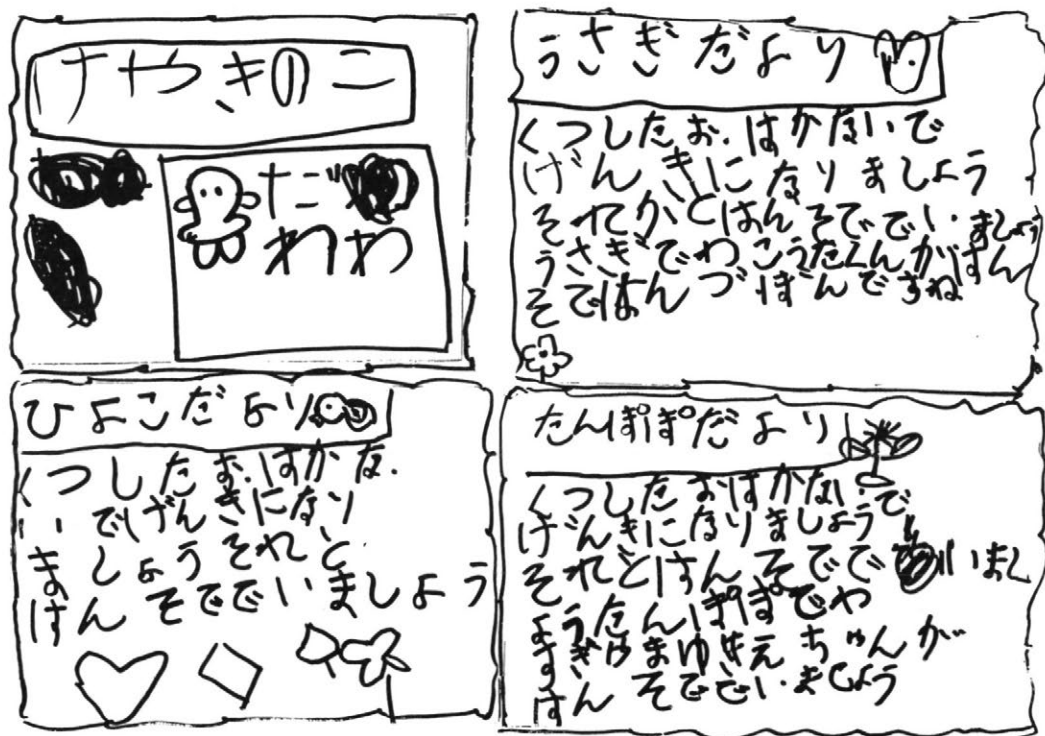 けやきのこ
だ
わわ
うさぎだより
くつしたお.はかないで
げんきになりましょう
それがとはんそででい.ましょう
うさぎでわこうたくんがはん
そではんづぼんですね
ひよこだより
くつしたお.はかな.
いでげんきになり
ましょうそれと
はんそででいましょう
たんぽぽだより
くつしたおはかない.で
げんきになりましょうで
それとはんそでで いまし
ようたんぽぽでわ
ちゃんが
はんそででい.ましょう